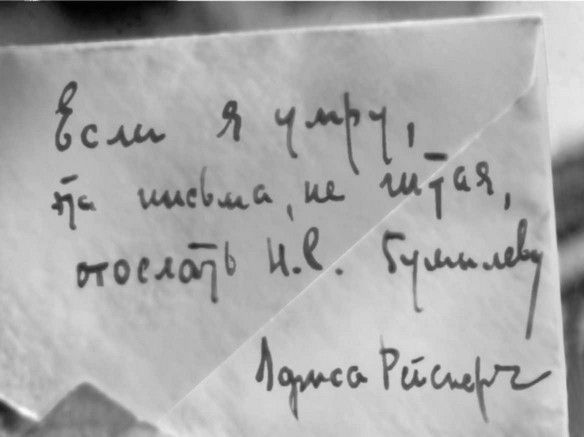 Если я умру,
письма, не читая,
отослать Н.С. Гумилеву
Лариса Рейснер